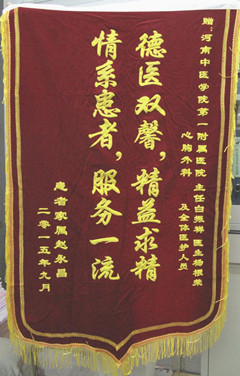 赠:河南中医学院第一附属医院 主任白振祥 医生杨根荣
心胸外科 及全体医护人员
德医双馨,精益求精
情系患者,服务一流
患者家属赵永昌
二零一五年九月